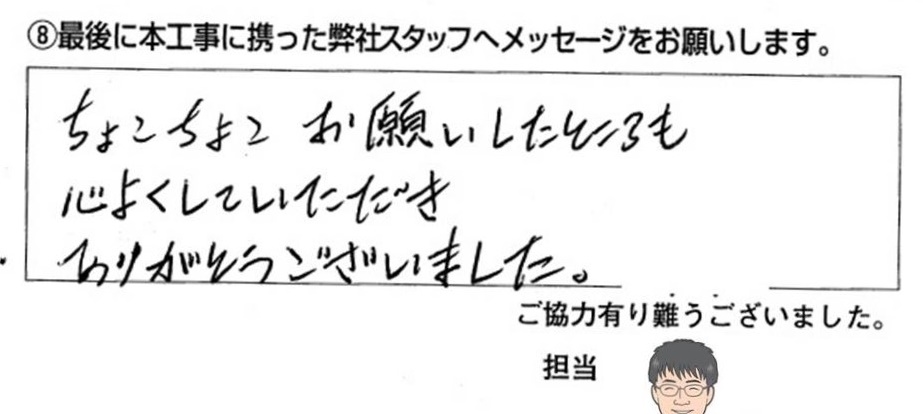 ⑧最後に本工事に携った弊社スタッフへメッセージをお願いします。
ちょこちょこ お願いしたところも
心よくしていただき
ありがとうございました。
ご協力有り難うございました。
担当